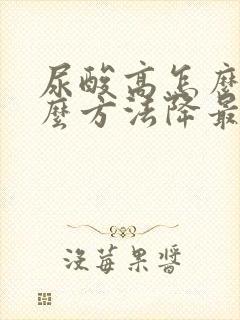 尿酸高怎麼
麼方法降最
沒莓果醬